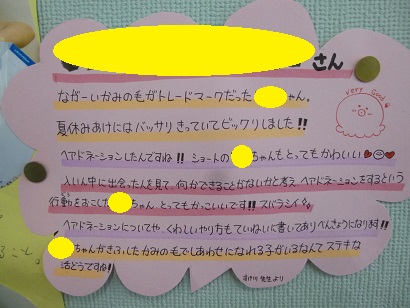 さん
very Good
ながーいかみの毛がトレードマークだった ちゃん。
夏休みあけにはバッサリきっていてビックリしました!!
ヘアドネーションしたんですね!! ショートの ちゃんもとってもかわいい
入いん中に出会った人を見て、何かできることがないかと考え、ヘアドネーションをするという
行動をおこした ちゃん、とってもかっこいいです!! スバラシイ
ヘアドネーションについてや、くわしいやり方もていねいに書いてありべんきょうになります!!
ちゃんがきふしたかみの毛でしあわせになれる子がいるなんてステキな
活どうですね!
先生より